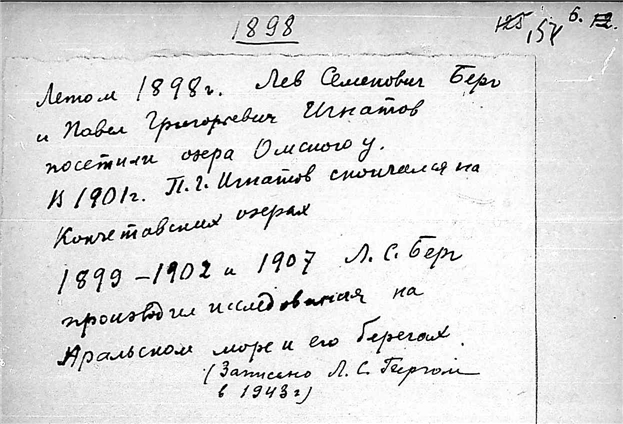 1898
154
6.
Летом 1898г. Лев Семенович Берг
и Павел Григорьевич Игнатов
посетили озера Омского у.
В 1901г. П.Г. Игнатов скончался на
Кокчетавских озерах
1899 – 1902 и 1907 Л. С. Берг
производил исследования на
Аральском море и его берегах.
(Записано Л. С. Бергом
в 1943г)